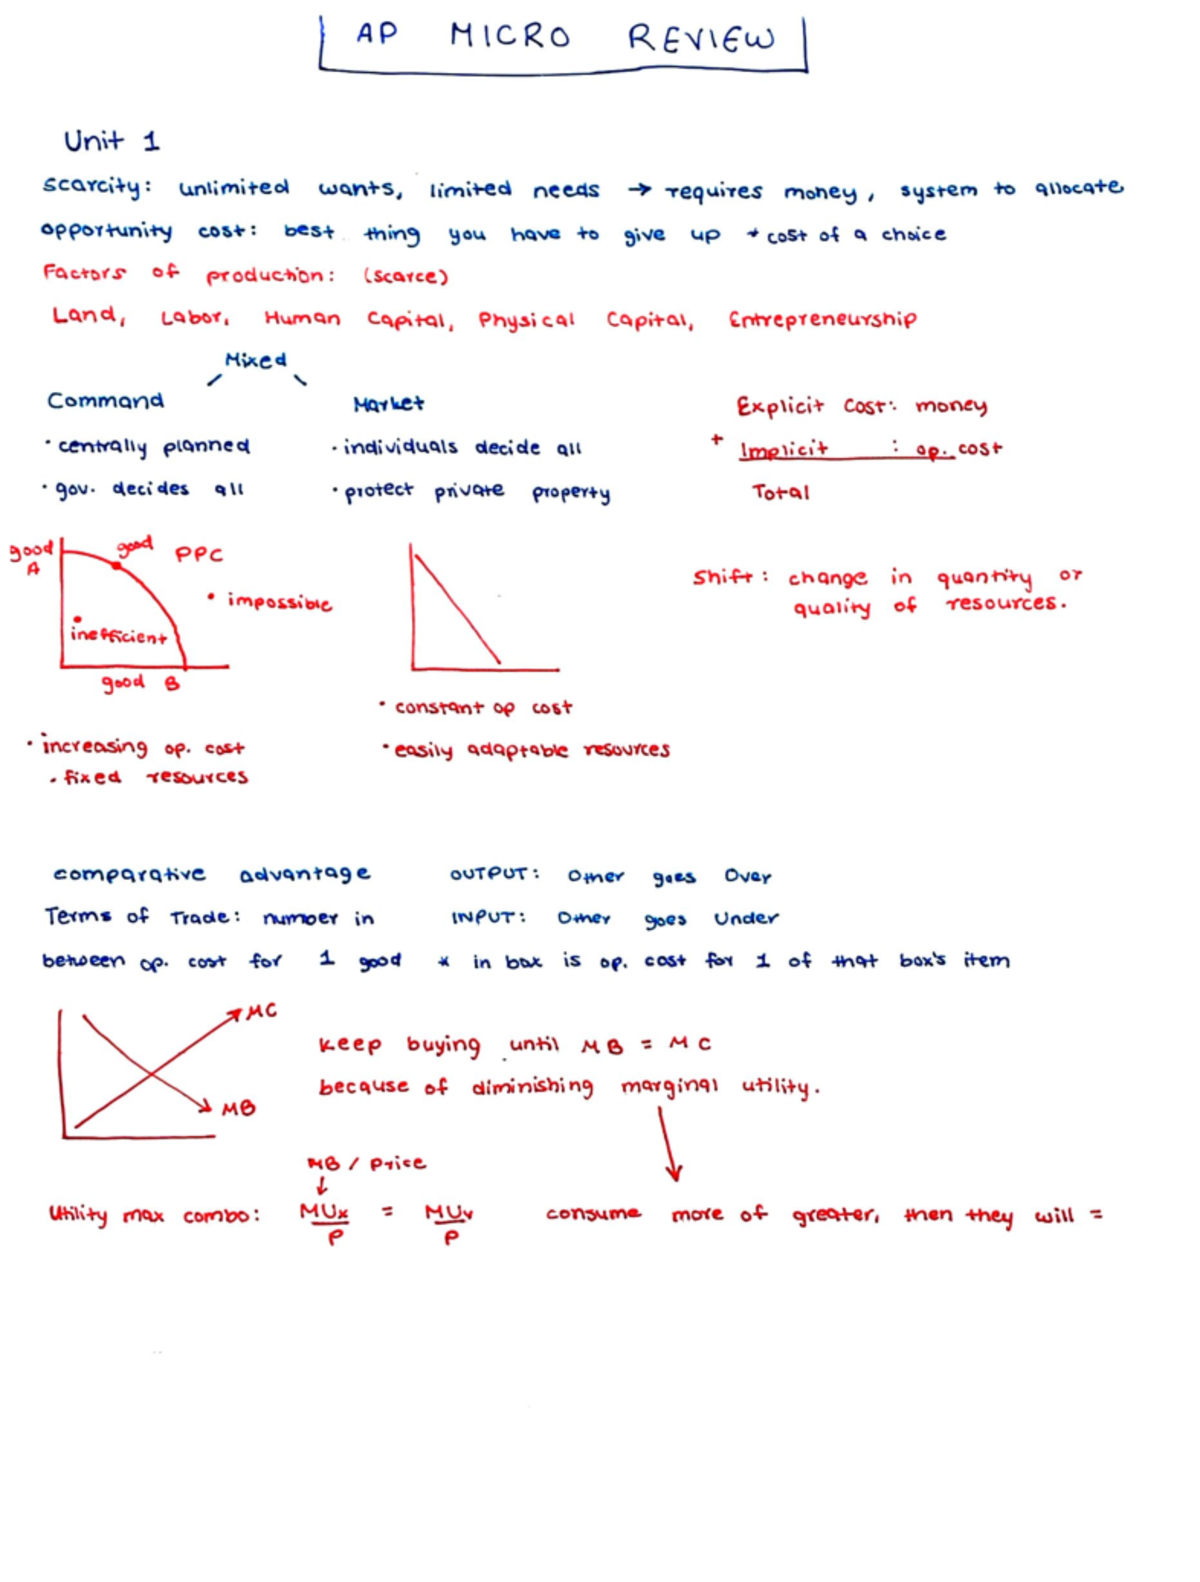 AP MICRO REVIEW
Unit 1
Scarcity: unlimited wants, limited needs → requires money, system to allocate
opportunity cost: best thing you have to give up * cost of a choice
Factors of production: (scarce)
Land, Labor, Human Capital, Physical Capital, Entrepreneurship
Mixed
Command
• centrally planned
• gov. decides all
Market
• individuals decide all
• protect private property
Explicit Cost: money
+ Implicit : op. cost
Total
good A
good
PPC
• impossible
inefficient
good B
• increasing op. cost
• fixed resources
• constant op cost
• easily adaptable resources
Shift: change in quantity or
quality of resources.
comparative advantage
Terms of Trade: number in
between op. cost for 1 good
OUTPUT: Other goes Over
INPUT: Other goes Under
* in box is op. cost for 1 of that box's item
MC
MB
Keep buying until MB = MC
because of diminishing marginal utility.
MB / Price
↓
Utility max combo: MUx/P = MUy/P
consume more of greater, then they will =